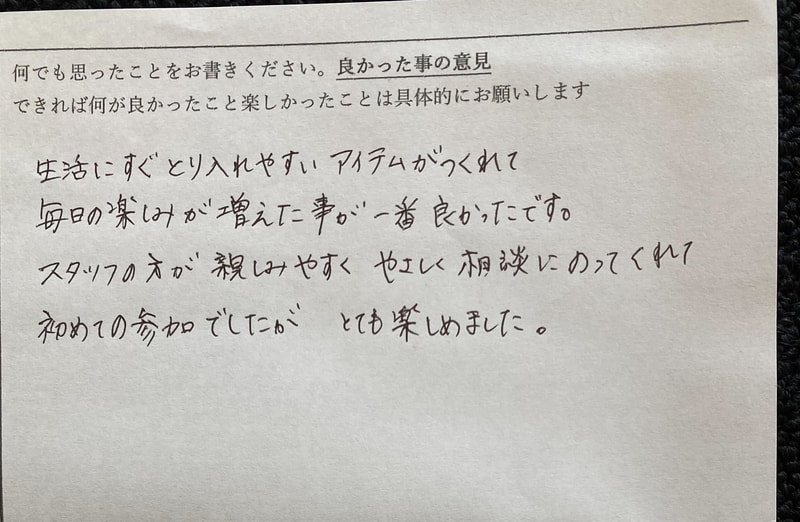 何でも思ったことをお書きください。良かった事の意見
できれば何が良かったこと楽しかったことは具体的にお願いします
生活にすぐとり入れやすい アイテムがつくれて
毎日の楽しみが増えた事が一番良かったです。
スタッフの方が親しみやすく やさしく相談にのってくれて
初めての参加でしたが とても楽しめました。